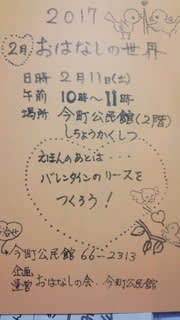 2017
2月 おはなしの世界
日時 2月11日(土)
午前 10時〜11時
場所 今町公民館(2階)
しちょうかくしつ
えほんのあとは・・・
バレンタインのリースを
つくろう!
今町公民館 66-2313
企画
運営 おはなしの会・今町公民館